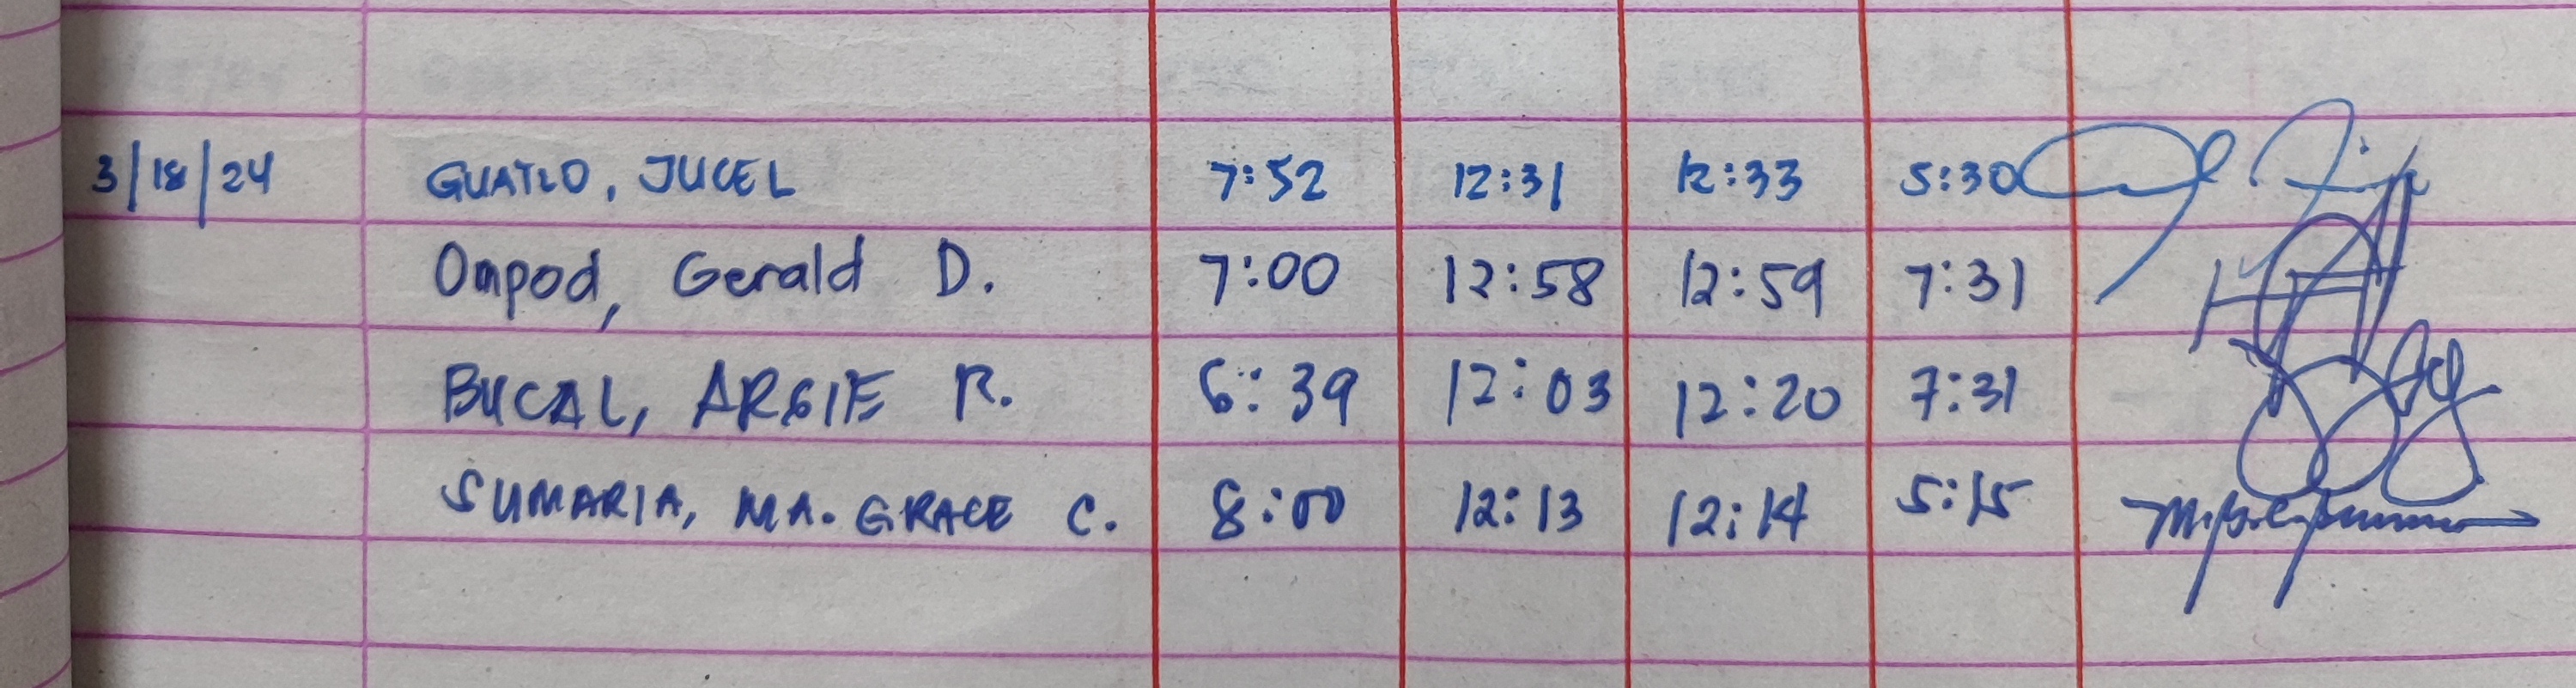 3/18/24 GUATLO, JUCEL 7:52 12:31 12:33 5:30
Ompod, Gerald D. 7:00 12:58 12:59 7:31
BUCAL, ARGIE R. 6:39 12:03 12:20 7:31
SUMARIA, MA. GRACE C. 8:00 12:13 12:14 5:15